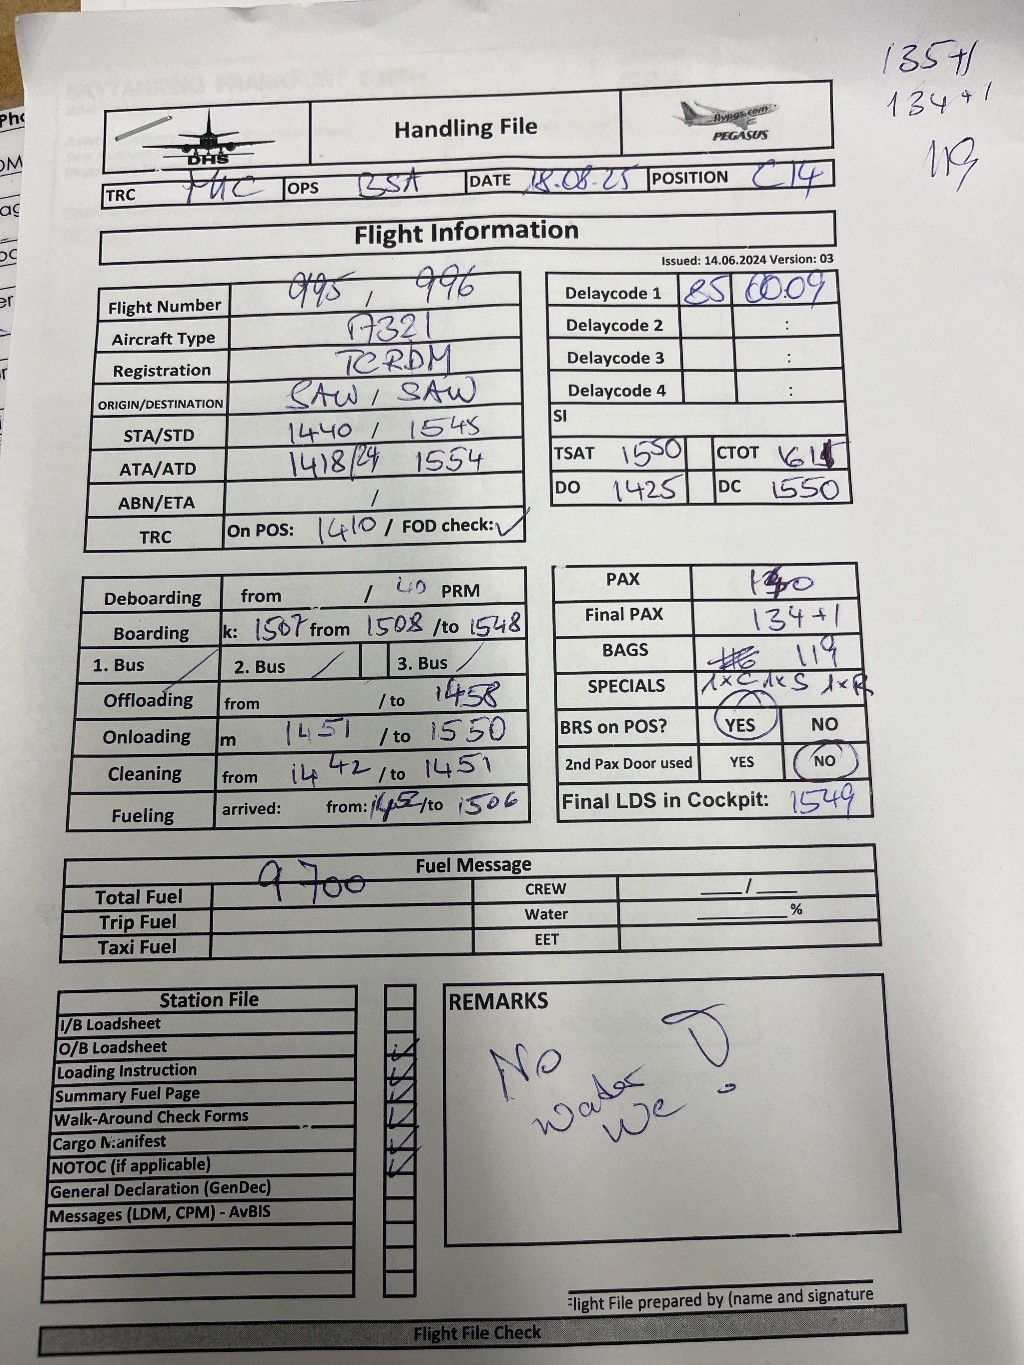 135+1
134+1
119
DHS
Handling File
flypgs.com
PEGASUS
TRC OPS BSA DATE 18.08.25 POSITION C14
Flight Information
Issued: 14.06.2024 Version: 03
Flight Number 995 / 996
Aircraft Type A321
Registration TCRDM
ORIGIN/DESTINATION SAW / SAW
STA/STD 1440 / 1545
ATA/ATD 1418/24 1554
ABN/ETA /
TRC On POS: 1410 / FOD check: ✓
Delaycode 1 85 00:09
Delaycode 2 :
Delaycode 3 :
Delaycode 4 :
SI
TSAT 1550 CTOT 1615
DO 1425 DC 1550
Deboarding from / PRM
Boarding k: 1507 from 1508 /to 1548
1. Bus / 2. Bus / 3. Bus /
Offloading from /to 1458
Onloading m 1451 /to 1550
Cleaning from 1442 /to 1451
Fueling arrived: from: /to 1506
PAX
Final PAX 134+1
BAGS 119
SPECIALS 1xC 1xS 1xR
BRS on POS? YES NO
2nd Pax Door used YES NO
Final LDS in Cockpit: 1549
Fuel Message
Total Fuel 9700 CREW ___/___
Trip Fuel Water ______ %
Taxi Fuel EET
Station File
I/B Loadsheet
O/B Loadsheet ✓
Loading Instruction ✓
Summary Fuel Page ✓
Walk-Around Check Forms ✓
Cargo Manifest ✓
NOTOC (if applicable) ✓
General Declaration (GenDec)
Messages (LDM, CPM) - AvBIS
REMARKS
No
water
WC !
Flight File prepared by (name and signature
Flight File Check